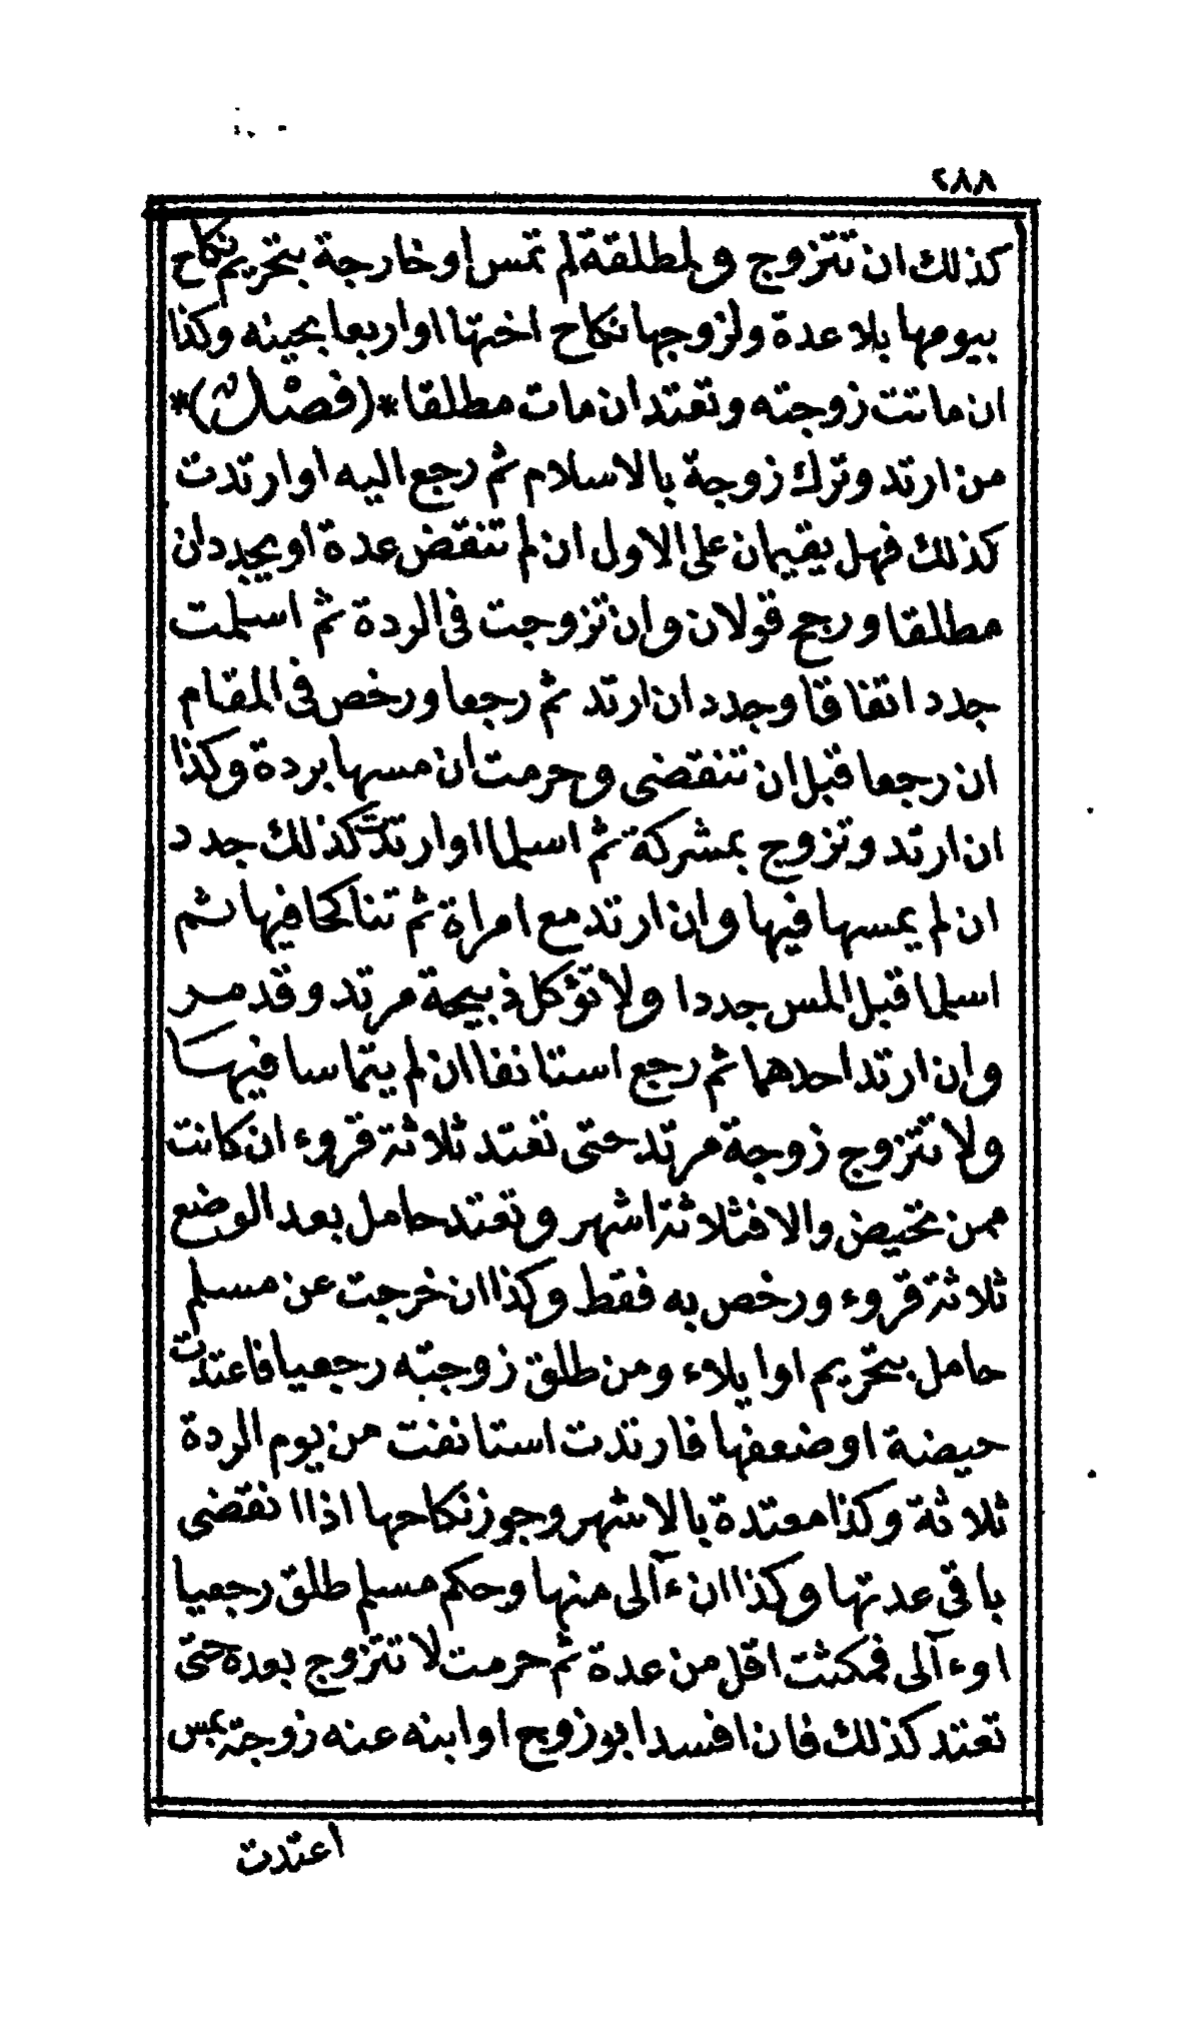 ٢٨٨
كذلك ان تتزوج ولمطلقة لم تمس او خارجة بتحريم نكاح
بيومها بلا عدة ولزوجها نكاح اختها او اربعا بحينه وكذا
ان ماتت زوجته وتعتد ان مات مطلقا *(فصل)*
من ارتد وترك زوجة بالاسلام ثم رجع اليه او ارتدت
كذلك فهل يقيمان على الاول ان لم تنقض عدة او يجددان
مطلقا ورجح قولان وان تزوجت فى الردة ثم اسلمت
جدد اتفاقا وجدد ان ارتد ثم رجعا ورخص فى المقام
ان رجعا قبل ان تنقضى وحرمت ان مسها بردة وكذا
ان ارتد وتزوج بمشركة ثم اسلما او ارتدت كذلك جدد
ان لم يمسها فيها وان ارتد مع امراة ثم تناكحا فيها ثم
اسلما قبل المس جددا ولا تؤكل ذبيحة مرتد وقد مر
وان ارتد احدهما ثم رجع استانفا ان لم يتماسا فيها
ولا تتزوج زوجة مرتد حتى تعتد ثلاثة قروء ان كانت
ممن تحيض والا فثلاثة اشهر وتعتد حامل بعد الوضع
ثلاثة قروء ورخص به فقط وكذا ان خرجت عن مسلم
حامل بتحريم او ايلاء ومن طلق زوجته رجعيا فاعتدت
حيضة او ضعفها فارتدت استانفت من يوم الردة
ثلاثة وكذا معتدة بالاشهر وجوز نكاحها اذا انقضى
باقى عدتها وكذا ان ءآلى منها وحكم مسلم طلق رجعيا
او ءآلى فمكثت اقل من عدة ثم حرمت لا تتزوج بعده حتى
تعتد كذلك فان افسد ابو زوج او ابنه عنه زوجة بمس
اعتدت